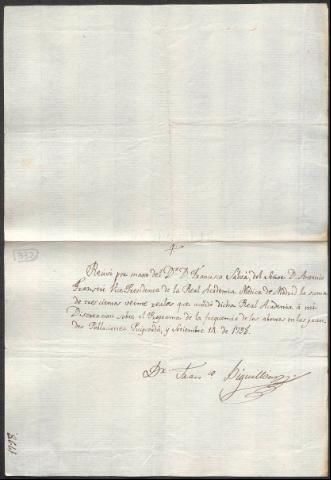 332
Recivi por mano del Dr. D. Francisco Salvá, del Señor D. Antonio
Franseri Vice-Presidente de la Real Academia Médica de Madrid la suma
de trescientos veinte reales que cedió dicha Real Academia à mi
Disertacion sobre el Programa de la frequencia de los abortos en las gran-
des Poblaciones Puigcerdá, y Setiembre 14 de 1798.
Dr. Franco. Piguillem
1798.